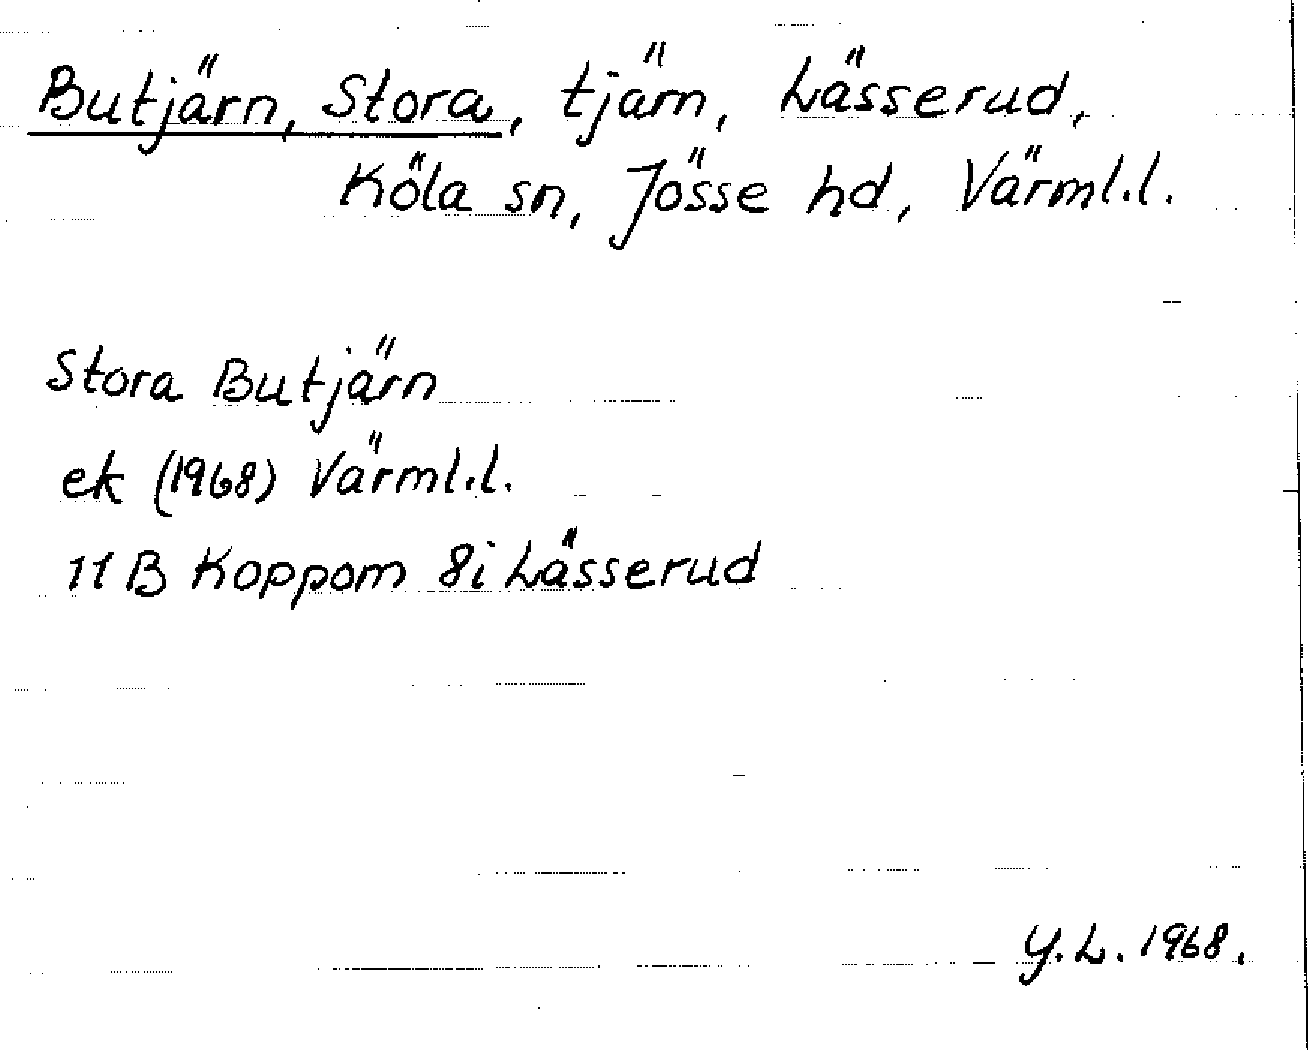 Butjärn, Stora, tjärn, Lässerud,
Köla sn, Jösse hd, Värml.l.
Stora Butjärn
ek (1968) Värml.l.
11 B Koppom 8i Lässerud
Y.L. 1968.